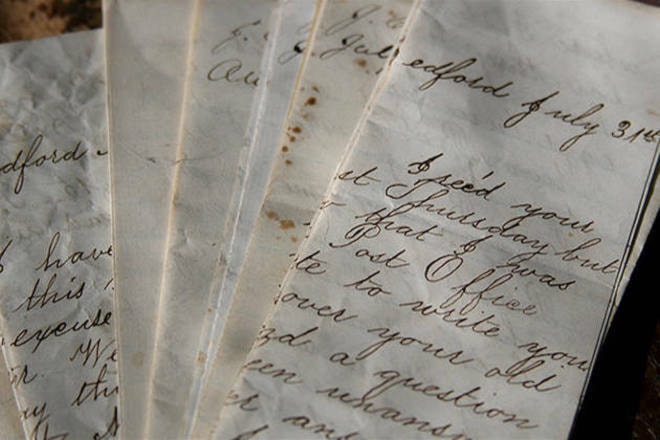 dford
have
this
excuse
r. We
ay th
J.
Au
J. Jul
edford July 31st
I rec'd your
st Thursday but
that I was
Post Office
te to write you
over your old
zd a question
een unansw
er an